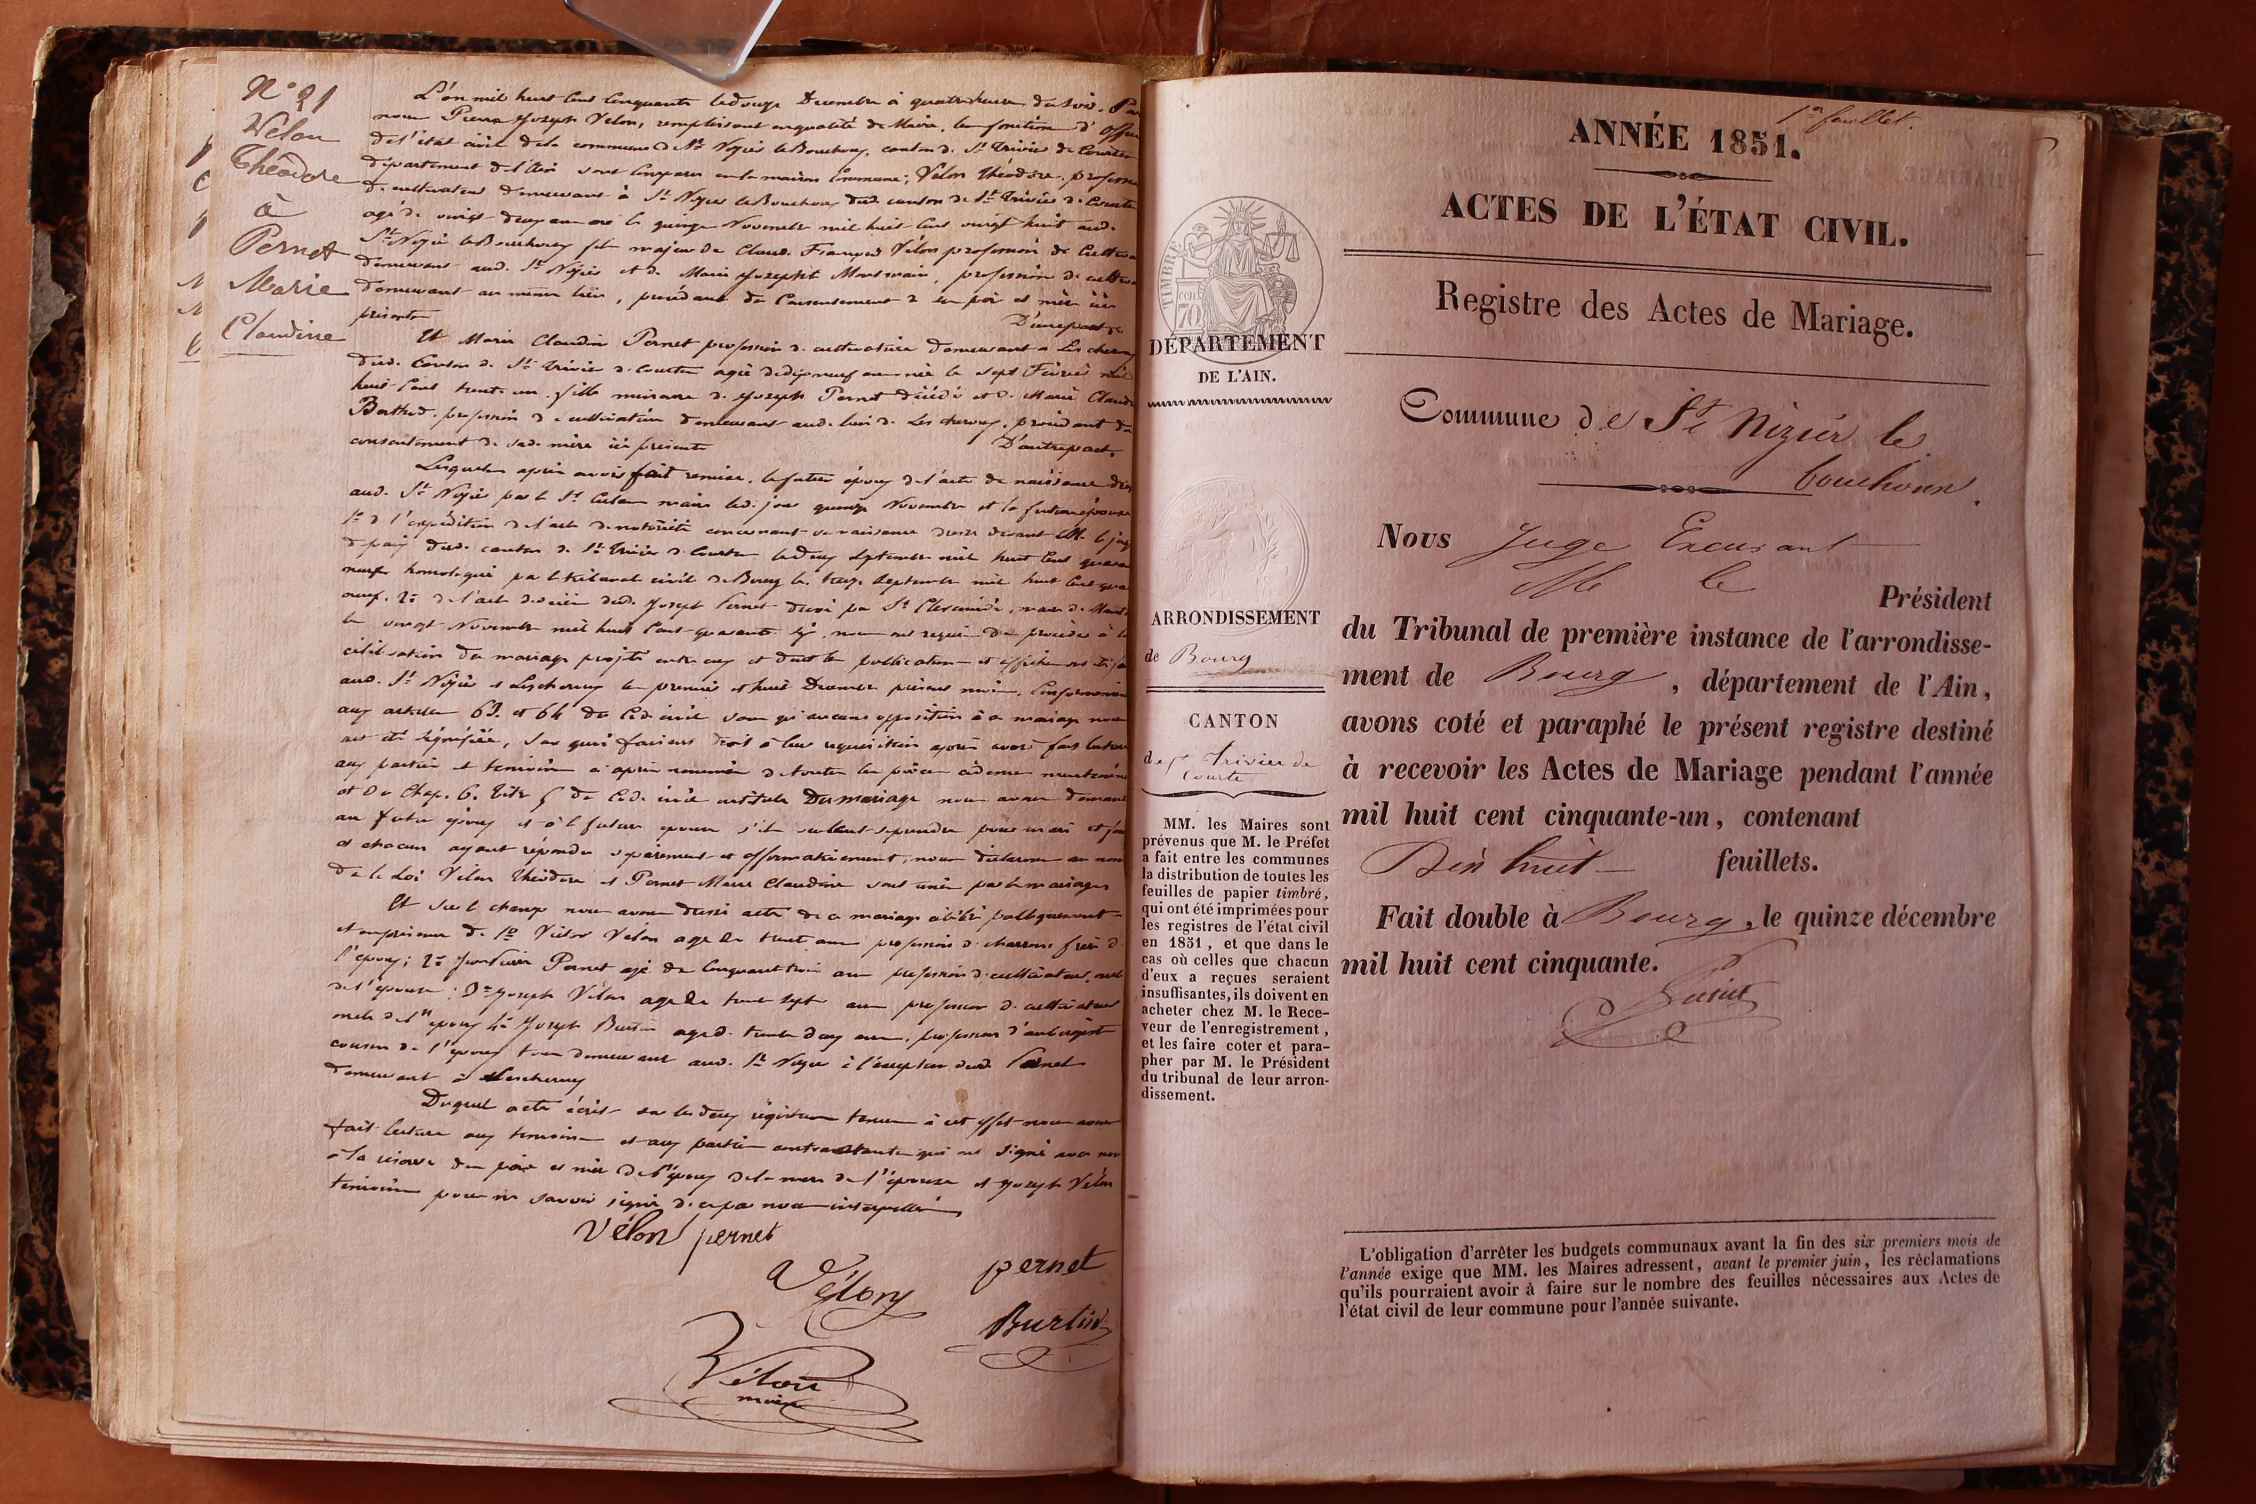 N° 21
Vélon
Théodore
à
Pernet
Marie
Claudine
L'an mil huit cent cinquante le douze Decembre à quatre heures du soir. Par
nous Pierre Joseph Velon, remplissant en qualité de Maire, les fonctions d'
de l'état civil de la commune de St Nizier le Bouchoux, canton de St Trivier de Courtes
département de l'Ain sont comparus en la maison Commune; Velon Théodore, profession
de cultivateur demeurant à St Nizier le Bouchoux dud. canton de St Trivier de Courtes
agé de vingt deux ans né le quinze Novembre mil huit cent vingt huit aud.
St Nizier le Bouchoux fils majeur de Claude François Vélon profession de
demeurant aud. St Nizier et de Marie Josephte profession de
demeurant au même lieu, procédant du Consentement de ses père et mère ici
présents D'une part
Et Marie Claudine Pernet profession de cultivatrice demeurant a
dud. Canton de St Trivier de Courtes agée de dix neuf ans née le sept Fevrier mil
huit Cent trente un, fille mineure de Joseph Pernet décédé et de Marie
profession de cultivatrice demeurant aud. lieu de procédant du
consentement de sad. mère ici présente D'autre part,
Lesquels après avoir fait remise, le futur époux de l'acte de naissance
aud. St Nizier par le Sr maire led. jour quinze Novembre et la future épouse
1° de l'expédition de l'acte de notoriété concernant sa naissance devant M. le juge
de paix dud. canton de St Trivier de Courtes le deux Septembre mil huit cent
neuf homologué par le tribunal civil de Bourg le treize Septembre mil huit cent
neuf. 2° de l'acte de décès dud. Joseph Pernet par Sr maire de
le vingt Novembre mil huit cent quarante nous ont requis de procéder à la
célébration du mariage projeté entre eux et dont les publications et affiches ont
aud. St Nizier et les premier et huit Decembre présent mois. Conformément
aux articles 63. et 64 du Code civil sans qu'aucune opposition à ce mariage nous
ait été signifiée, faisant droit à leur requisition après avoir fait lecture
aux parties et témoins de toutes les pièces
et du Chap. 6. Titre 5 du Code civil intitulé Du mariage nous avons demandé
au futur époux et à la future épouse s'ils veulent se prendre pour mari et
et chacun ayant répondu séparément et affirmativement, nous déclarons au nom
de la Loi Velon Théodore et Pernet Marie Claudine sont unis par le mariage
Et sur le champ nous avons dressé acte de ce mariage célébré publiquement
et en présence de 1° Victor Velon agé de trente ans profession de charron frère de
l'époux; 2° Pernet agé de Cinquante trois ans profession de cultivateur, oncle
de l'épouse; 3° Joseph Vélon agé de trente sept ans profession de cultivateur
oncle de l'époux 4° Joseph Burtin agé de trente deux ans, profession d'aubergiste
cousin de l'époux tous demeurant aud. St Nizier à l'exception dud. Pernet
demeurant à
Duquel acte écrit sur les deux régistres tenus à cet effet nous avons
fait lecture aux témoins et aux parties contractantes qui ont signé avec nous
à la réserve des père et mère de l'époux de la mère de l'épouse et Joseph Vélon
témoins pour ne savoir signer de ce par nous interpellés
Vélon pernet
Vélon pernet
Burtin
Vélon
maire
1er feuillet.
ANNÉE 1851.
ACTES DE L'ÉTAT CIVIL.
Registre des Actes de Mariage.
Commune de St Nizier le
bouchoux.
Nous Juge Excusant
M le Président
du Tribunal de première instance de l'arrondisse-
ment de Bourg, département de l'Ain,
avons coté et paraphé le présent registre destiné
à recevoir les Actes de Mariage pendant l'année
mil huit cent cinquante-un, contenant
Dix huit feuillets.
Fait double à Bourg, le quinze décembre
mil huit cent cinquante.
TIMBRE
cent 70
DÉPARTEMENT
DE L'AIN.
ARRONDISSEMENT
de Bourg
CANTON
de St Trivier de
Courtes
MM. les Maires sont
prévenus que M. le Préfet
a fait entre les communes
la distribution de toutes les
feuilles de papier timbré,
qui ont été imprimées pour
les registres de l'état civil
en 1851, et que dans le
cas où celles que chacun
d'eux a reçues seraient
insuffisantes, ils doivent en
acheter chez M. le Rece-
veur de l'enregistrement,
et les faire coter et para-
pher par M. le Président
du tribunal de leur arron-
dissement.
L'obligation d'arrêter les budgets communaux avant la fin des six premiers mois de
l'année exige que MM. les Maires adressent, avant le premier juin, les réclamations
qu'ils pourraient avoir à faire sur le nombre des feuilles nécessaires aux Actes de
l'état civil de leur commune pour l'année suivante.